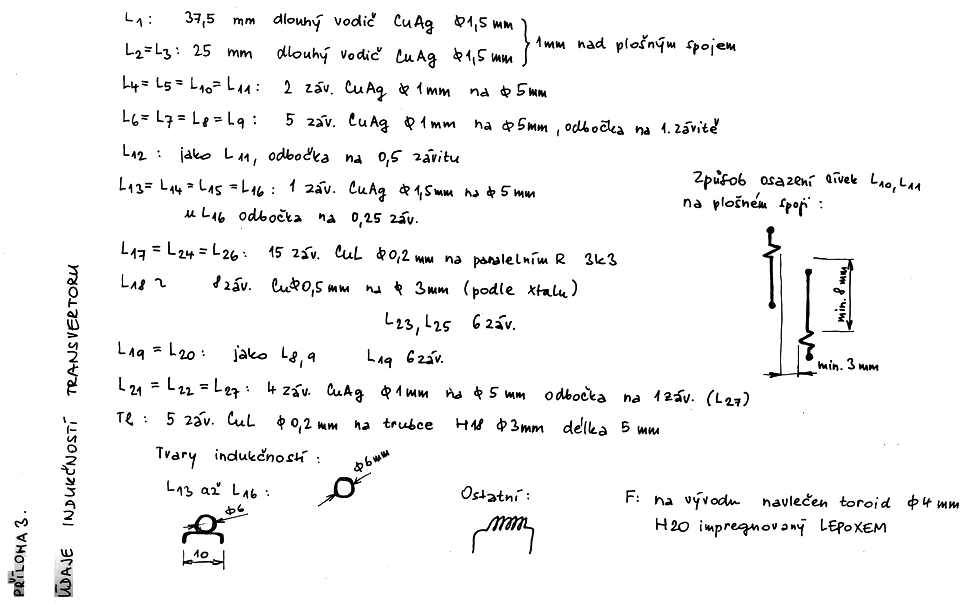 L1: 37,5 mm dlouhý vodič CuAg ϕ1,5 mm
L2=L3: 25 mm dlouhý vodič CuAg ϕ1,5 mm
1mm nad plošným spojem
L4=L5=L10=L11: 2 záv. CuAg ϕ1mm na ϕ5mm
L6=L7=L8=L9: 5 záv. CuAg ϕ1mm na ϕ5mm, odbočka na 1. závitě
L12: jako L11, odbočka na 0,5 závitu
L13=L14=L15=L16: 1 záv. CuAg ϕ1,5mm na ϕ5mm
u L16 odbočka na 0,25 záv.
L17=L24=L26: 15 záv. CuL ϕ0,2mm na paralelním R 3k3
L18 ~ 8záv. Cuϕ0,5mm na ϕ 3mm (podle xtalu)
L23, L25 6záv.
L19=L20: jako L8,9 L19 6záv.
L21=L22=L27: 4záv. CuAg ϕ1mm na ϕ5mm odbočka na 1záv. (L27)
Tl: 5 záv. CuL ϕ0,2mm na trubce H18 ϕ3mm délka 5 mm
Způsob osazení cívek L10,L11
na plošném spoji:
min. 8 mm
min. 3 mm
Tvary indukčností:
L13 až L16:
ϕ6mm
ϕ6
10
Ostatní:
F: na vývodu navlečen toroid ϕ4mm
H20 impregnovaný LEPOXEM
PŘÍLOHA 3.
ÚDAJE INDUKČNOSTÍ TRANSVERTORU